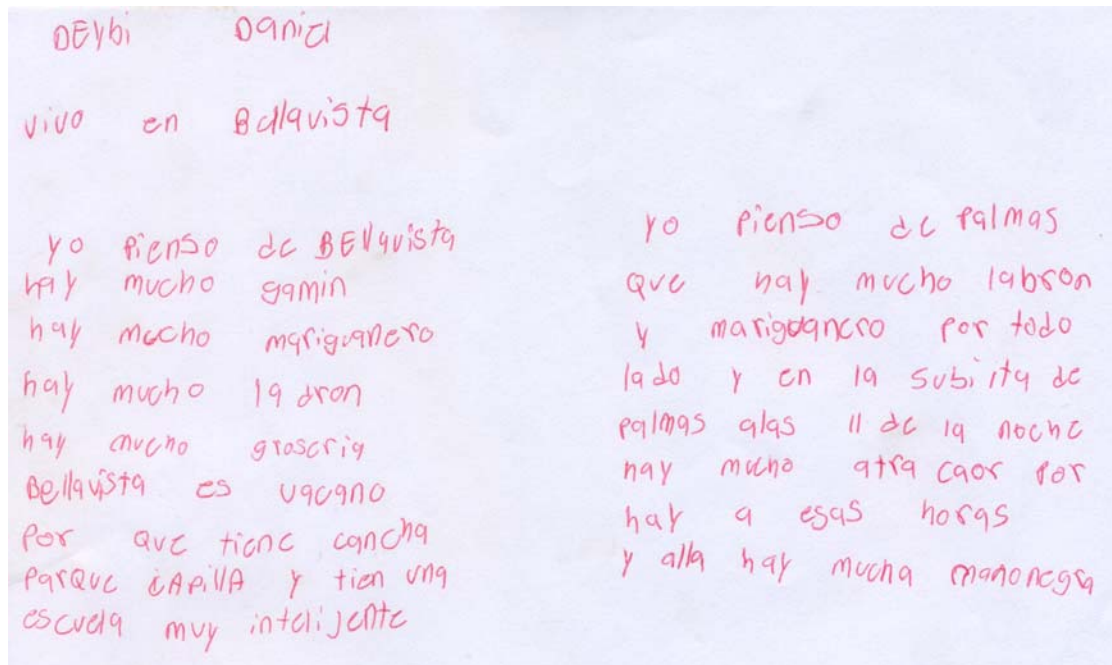 DEybi Daniel
vivo en Bellavista
yo Pienso de BEllavista
hay mucho gamin
hay mucho mariguanero
hay mucho ladron
hay mucho groseria
Bellavista es vacano
Por que tiene cancha
ParQue cAPillA y tien una
escuela muy intelijente
yo Pienso de Palmas
que hay mucho labron
y mariguancro por todo
lado y en la subi ita de
palmas alas 11 de la noche
hay mucho atra caor por
hay a esas horas
y alla hay mucha manonegra